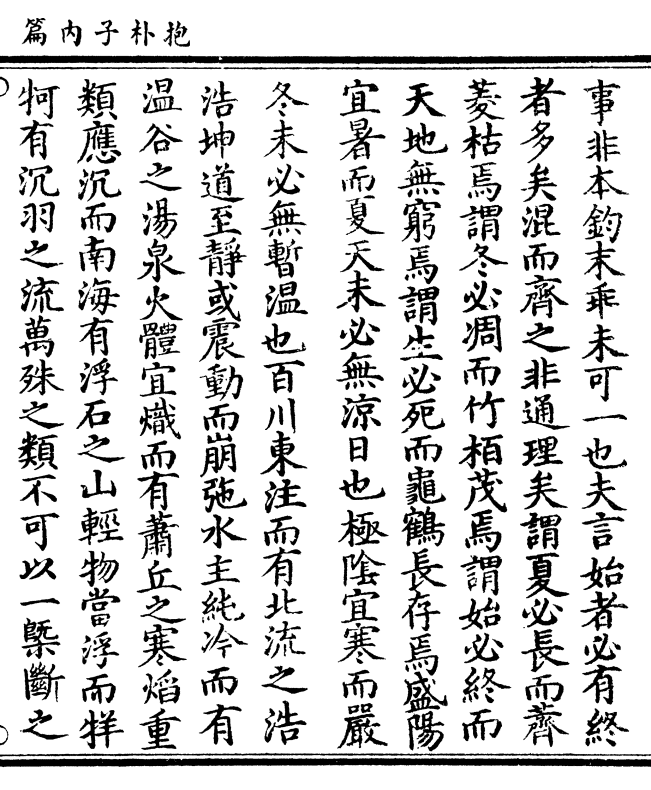 抱朴子內篇
事非本鈞末乖未可一也夫言始者必有終
者多矣混而齊之非通理矣謂夏必長而薺
菱枯焉謂冬必凋而竹栢茂焉謂始必終而
天地無窮焉謂生必死而龜鶴長存焉盛陽
宜暑而夏天未必無涼日也極陰宜寒而嚴
冬未必無暫温也百川東注而有北流之浩
浩坤道至靜或震動而崩弛水主純冷而有
温谷之湯泉火體宜熾而有蕭丘之寒焰重
類應沉而南海有浮石之山輕物當浮而牂
牁有沉羽之流萬殊之類不可以一槩斷之